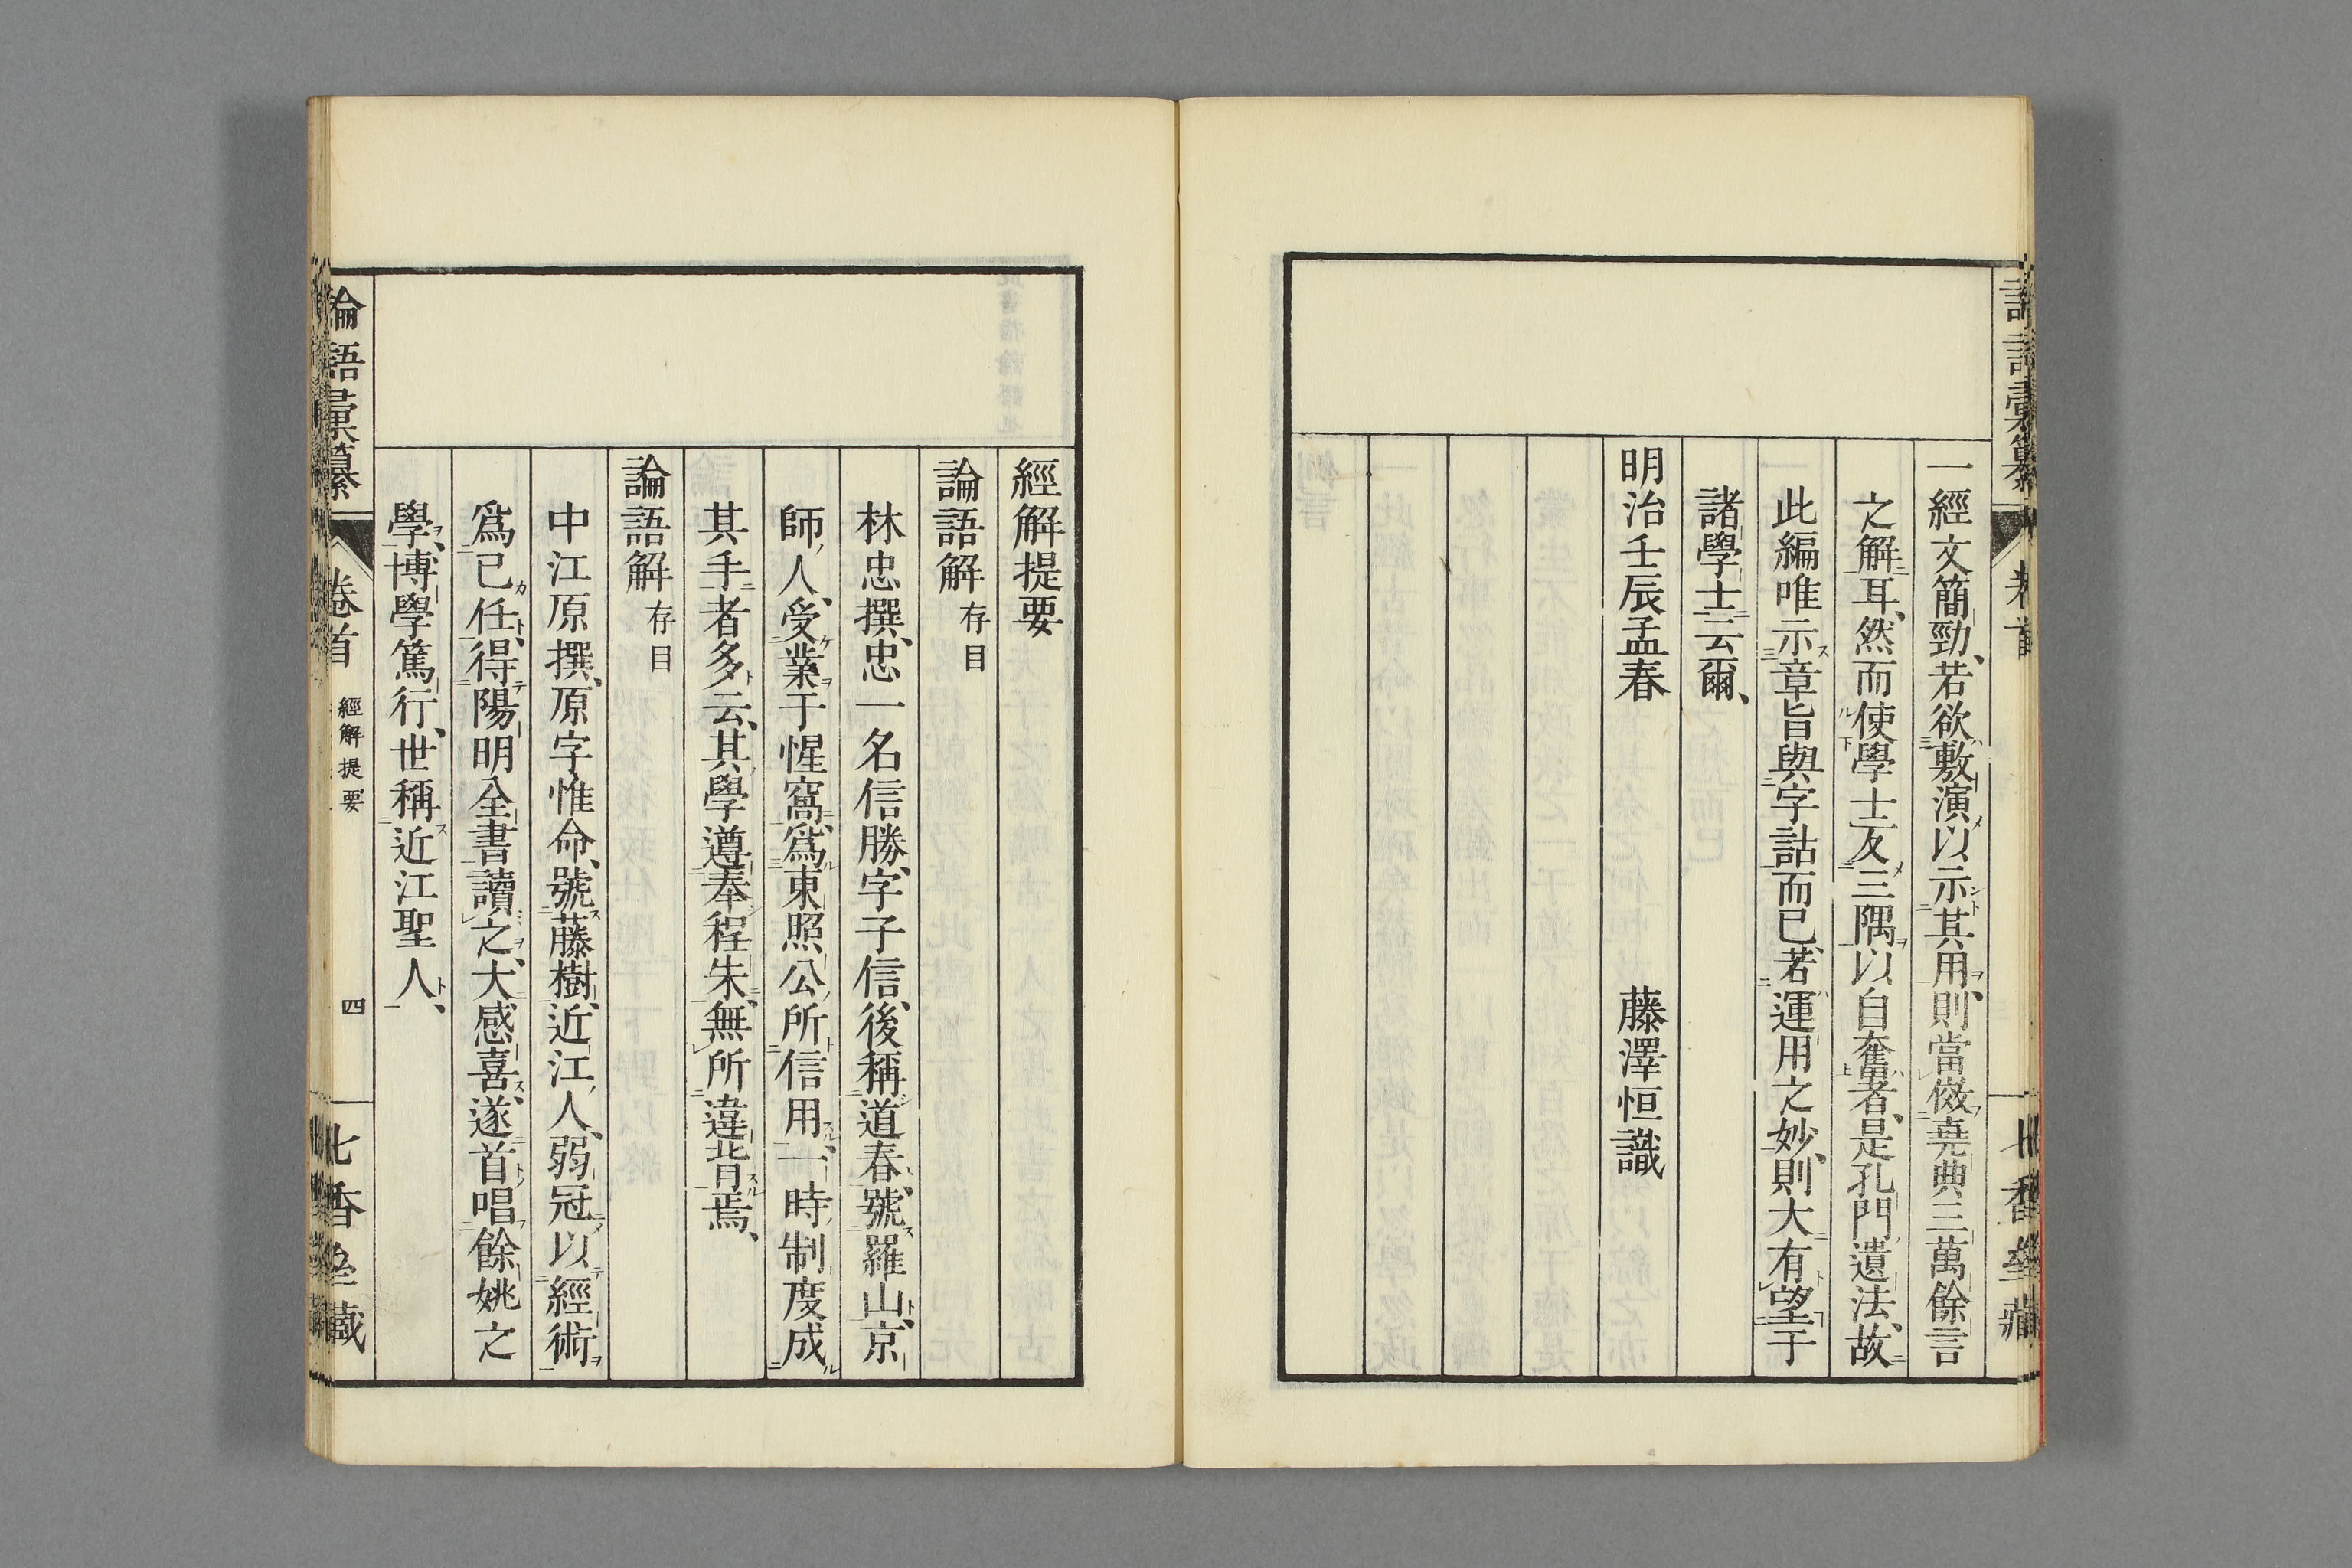 一經文簡勁、若欲敷演以示其用、則當倣堯典三萬餘言
之解耳、然而使學士反三隅以自奮者、是孔門遺法、故
此編唯示章旨與字詁而已、若運用之妙、則大有望于
諸學士云爾、
明治壬辰孟春　藤澤恒識
經解提要
論語解 存目
林忠撰、忠一名信勝、字子信、後稱道春、號羅山、京
師人、受業于惺窩、爲東照公所信用、一時制度成
其手者多云、其學遵奉程朱、無所違背焉、
論語解 存目
中江原撰、原字惟命、號藤樹、近江人、弱冠以經術
爲己任、得陽明全書讀之、大感喜、遂首唱餘姚之
學、博學篤行、世稱近江聖人、
論語彙纂　卷首　經解提要　四